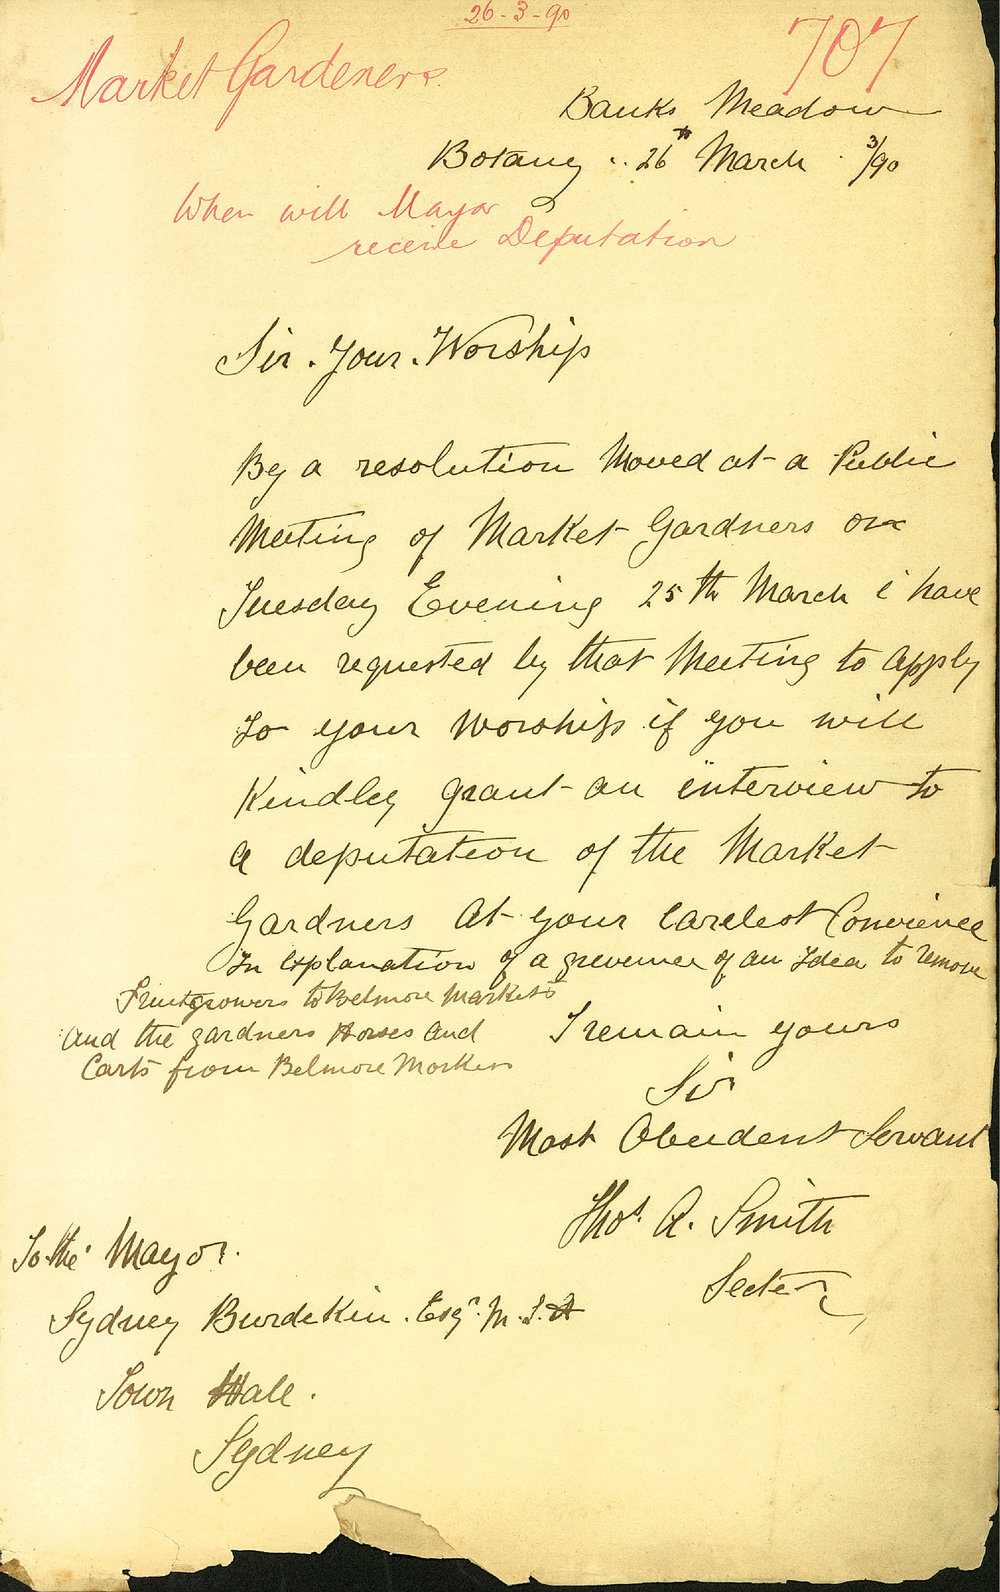 26-3-90
707
Market Gardeners.
Banks Meadow
Botany .. 26th March 3/90
When will Mayor
receive Deputation
Sir . Your . Worship
By a resolution Moved at a Public
Meeting of Market Gardners on
Tuesday Evening 25th March i have
been requested by that Meeting to apply
to your Worship if you will
Kindley grant an interview to
a deputation of the Market
Gardners At your Earelest Convience
In Explanation of a grevence of an Idea to remove
Fruitgrowers to Belmore Markets
and the gardners Horses and
Carts from Belmore Markets
I remain yours
Sir
Most Obeedent Servant
Thos. A. Smith
To the Mayor.
Sydney Burdekin . Esqr. M.
Town Hall .
Sydney